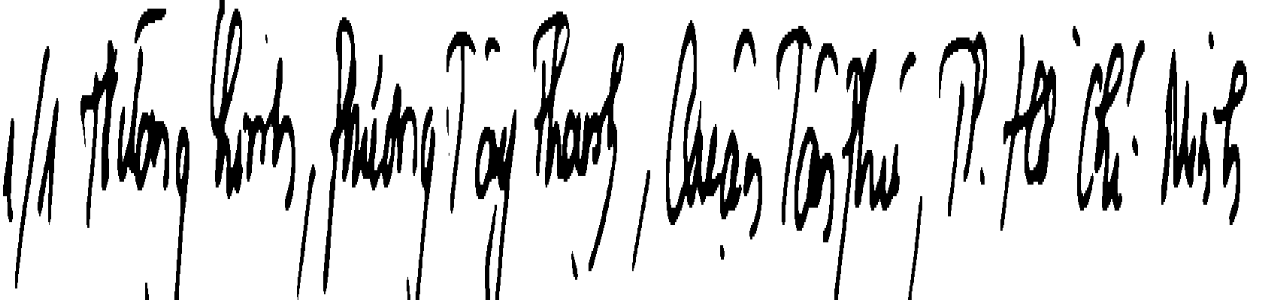 1/1 Trường Chinh, Phường Tây Thạnh, Quận Tân Phú, TP. Hồ Chí Minh